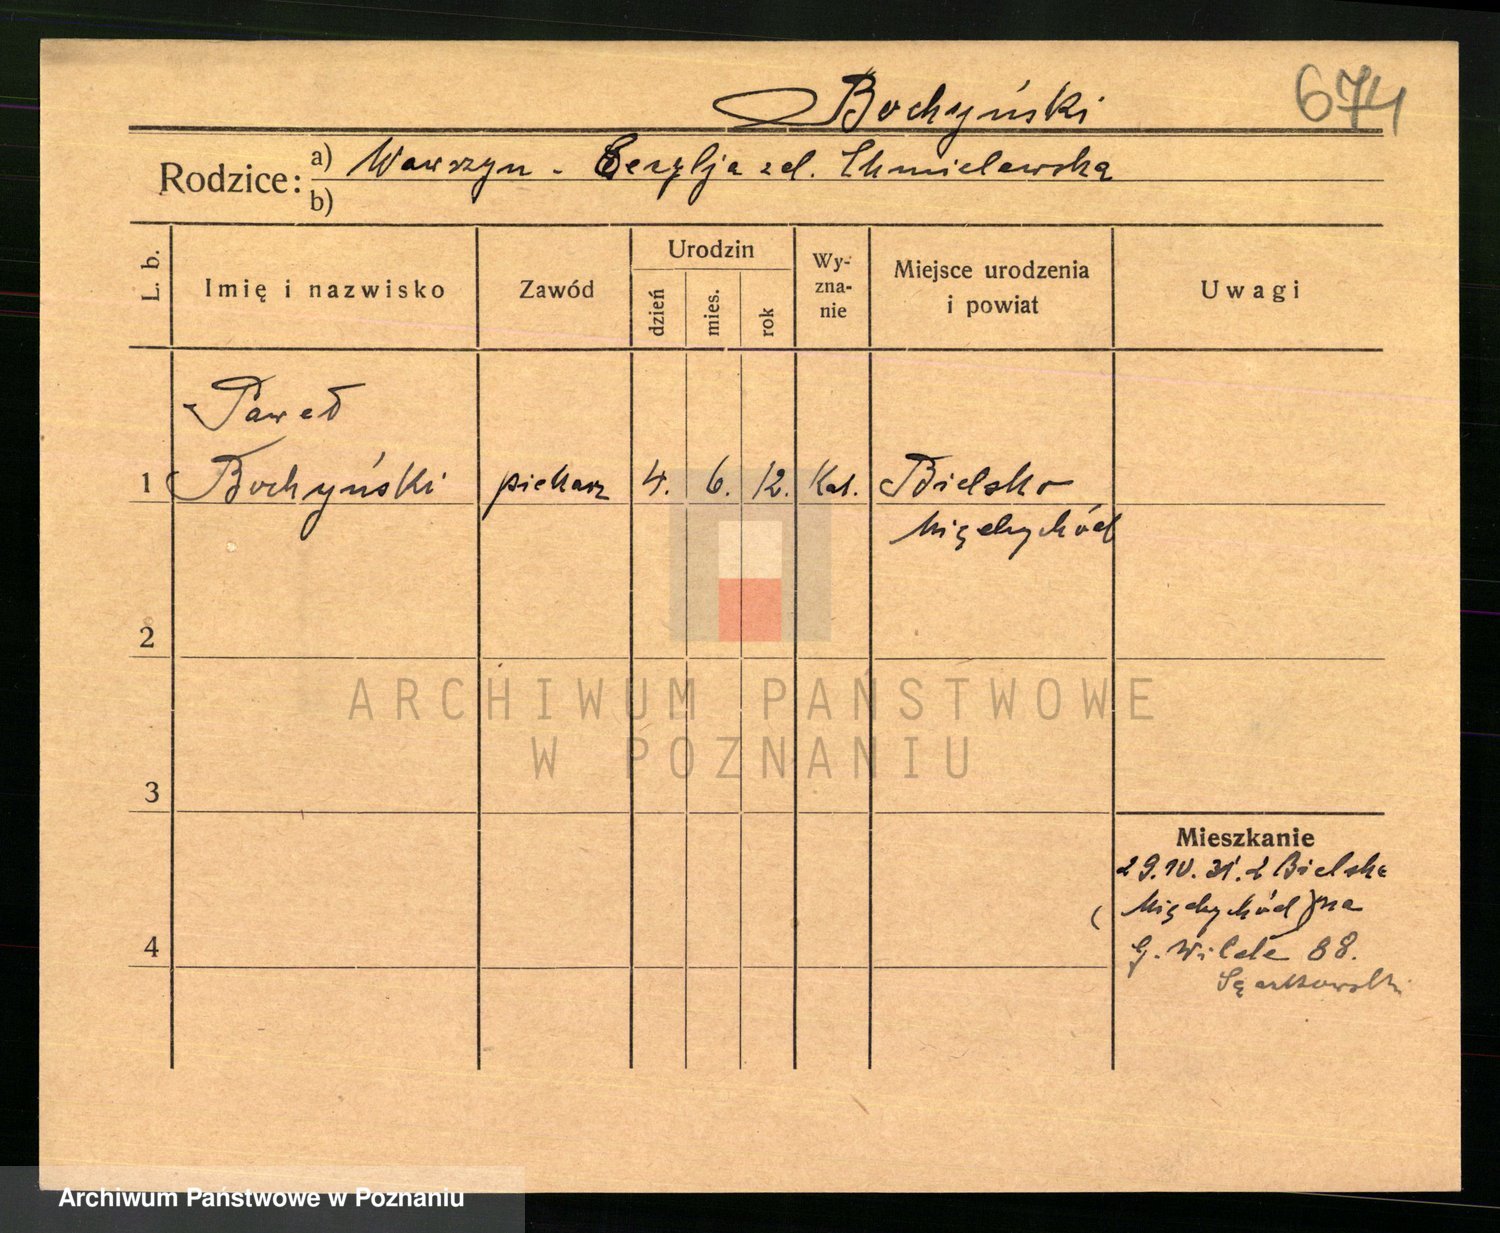 Bochyński
674
Rodzice: a) Wawrzyn - Cecylja zd. Chmielewska
b)
L. b.
Imię i nazwisko
Zawód
Urodzin
dzień
mies.
rok
Wy-
zna-
nie
Miejsce urodzenia
i powiat
Uwagi
Paweł
1 Bochyński piekarz 4. 6. 12. Kat. Bielsko
Międzychód
2
ARCHIWUM PAŃSTWOWE
W POZNANIU
3
Mieszkanie
29.IV.31. z Bielska
(Międzychód) na
4
G. Wilda 88.
Archiwum Państwowe w Poznaniu